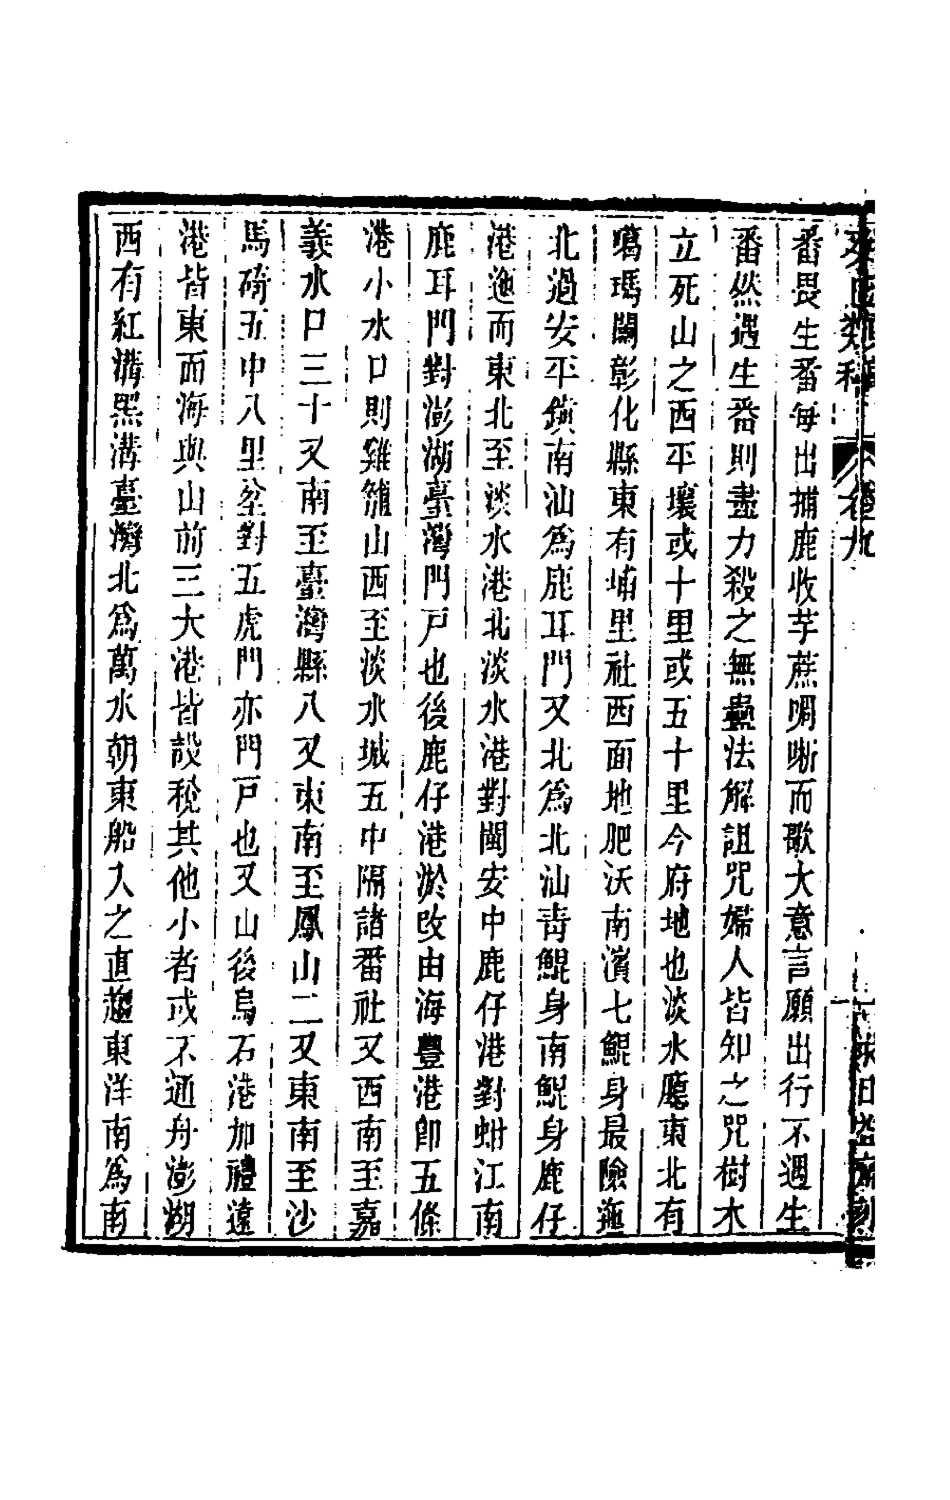 番畏生番每出捕鹿收芋蔗啁哳而歌大意言願出行不遇生
番然遇生番則盡力殺之無蠱法解詛咒婦人皆知之咒樹木
立死山之西平壤或十里或五十里今府地也淡水廳東北有
噶瑪闌彰化縣東有埔里社西面地肥沃南濱七鯤身最險迤
北過安平鎮南汕為鹿耳門又北為北汕青鯤身南鯤身鹿仔
港迤而東北至淡水港北淡水港對閩安中鹿仔港對蚶江南
鹿耳門對澎湖臺灣門戸也後鹿仔港淤改由海豐港卽五條
港小水口則雞籠山西至淡水城五中隔諸番社又西南至嘉
義水口三十又南至臺灣縣八又東南至鳳山二又東南至沙
馬碕五中八里坌對五虎門亦門戸也又山後烏石港加禮遠
港皆東而海與山前三大港皆設稅其他小者或不通舟澎湖
西有紅溝黑溝臺灣北為萬水朝東船入之直趨東洋南為南
類稿
卷九